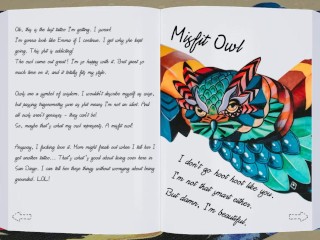 Ok, this is the last tattoo I'm getting, I swear!
I'm gonna look like Emma if I continue. I get why she kept
going. This shit is addicting!
The owl came out great! I'm so happy with it. Sent great so
much time on it, and it totally fits my style.
Owls are a symbol of wisdom. I wouldn't describe myself as wise,
but buying hogwarmity won us that money. I'm not an idiot. And
all owls aren't geniuses - they can't be!
So, maybe that's what my owl represents. A misfit owl!
Anyway, I fucking love it. Mom might freak out when I tell her I
got another tattoo... That's what's good about living over here in
San Diego. I can tell her these things without worrying about being
grounded. LOL!
Misfit Owl
I don't go hoot hoot like you,
I'm not that smart either.
But damn, I'm beautiful.